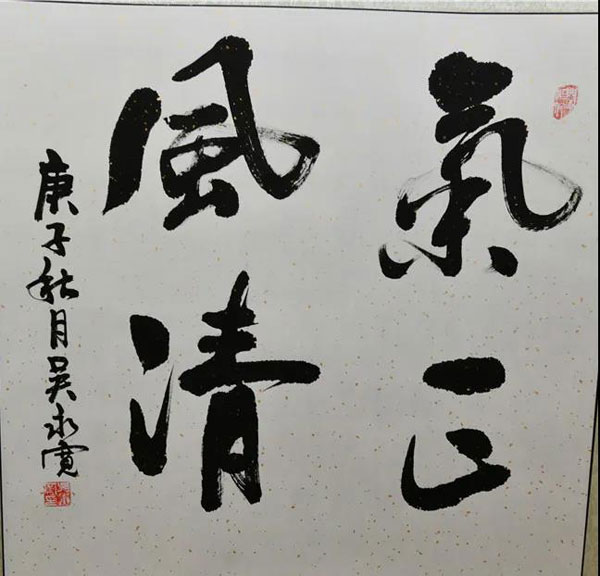 氣正
風清
庚子秋月吴永寛